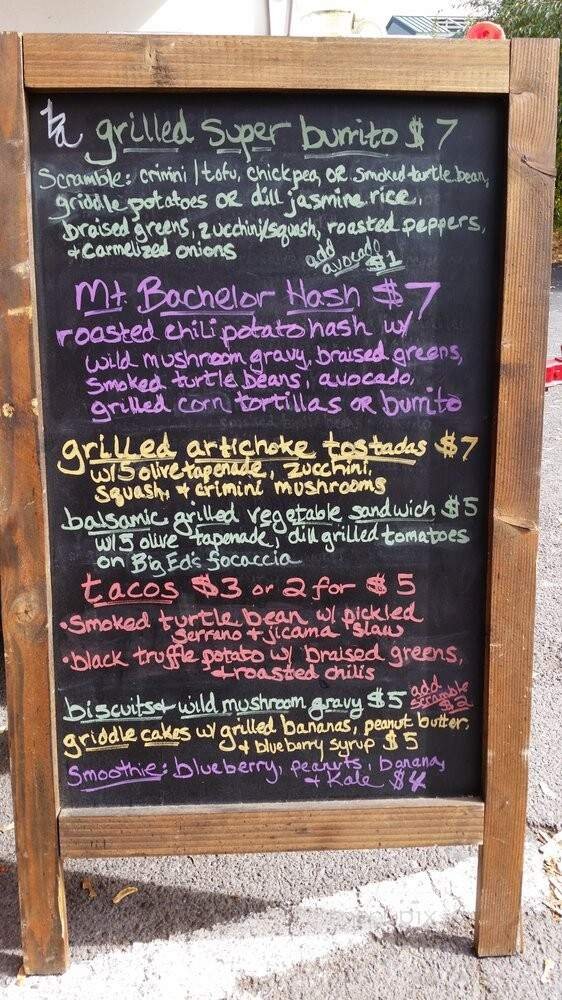 grilled super burrito $7
Scramble: crimini / tofu, chickpea, OR smoked turtle bean,
griddle potatoes OR dill jasmine rice,
braised greens, zucchini/squash, roasted peppers,
+ carmelized onions
add
avocado $1
Mt. Bachelor Hash $7
roasted chili potato hash w/
wild mushroom gravy, braised greens,
smoked turtle beans, avocado,
grilled corn tortillas OR burrito
grilled artichoke tostadas $7
w/ 5 olive tapenade, zucchini,
squash, + crimini mushrooms
balsamic grilled vegetable sandwich $5
w/ 5 olive tapenade, dill grilled tomatoes
on Big Ed's focaccia
tacos $3 or 2 for $5
•smoked turtle bean w/ pickled
serrano + jicama slaw
•black truffle potato w/ braised greens,
+ roasted chilis
biscuits + wild mushroom gravy $5
add
scramble
$2
griddle cakes w/ grilled bananas, peanut butter,
+ blueberry syrup $5
Smoothie: blueberry, peanuts, banana,
+ Kale $4